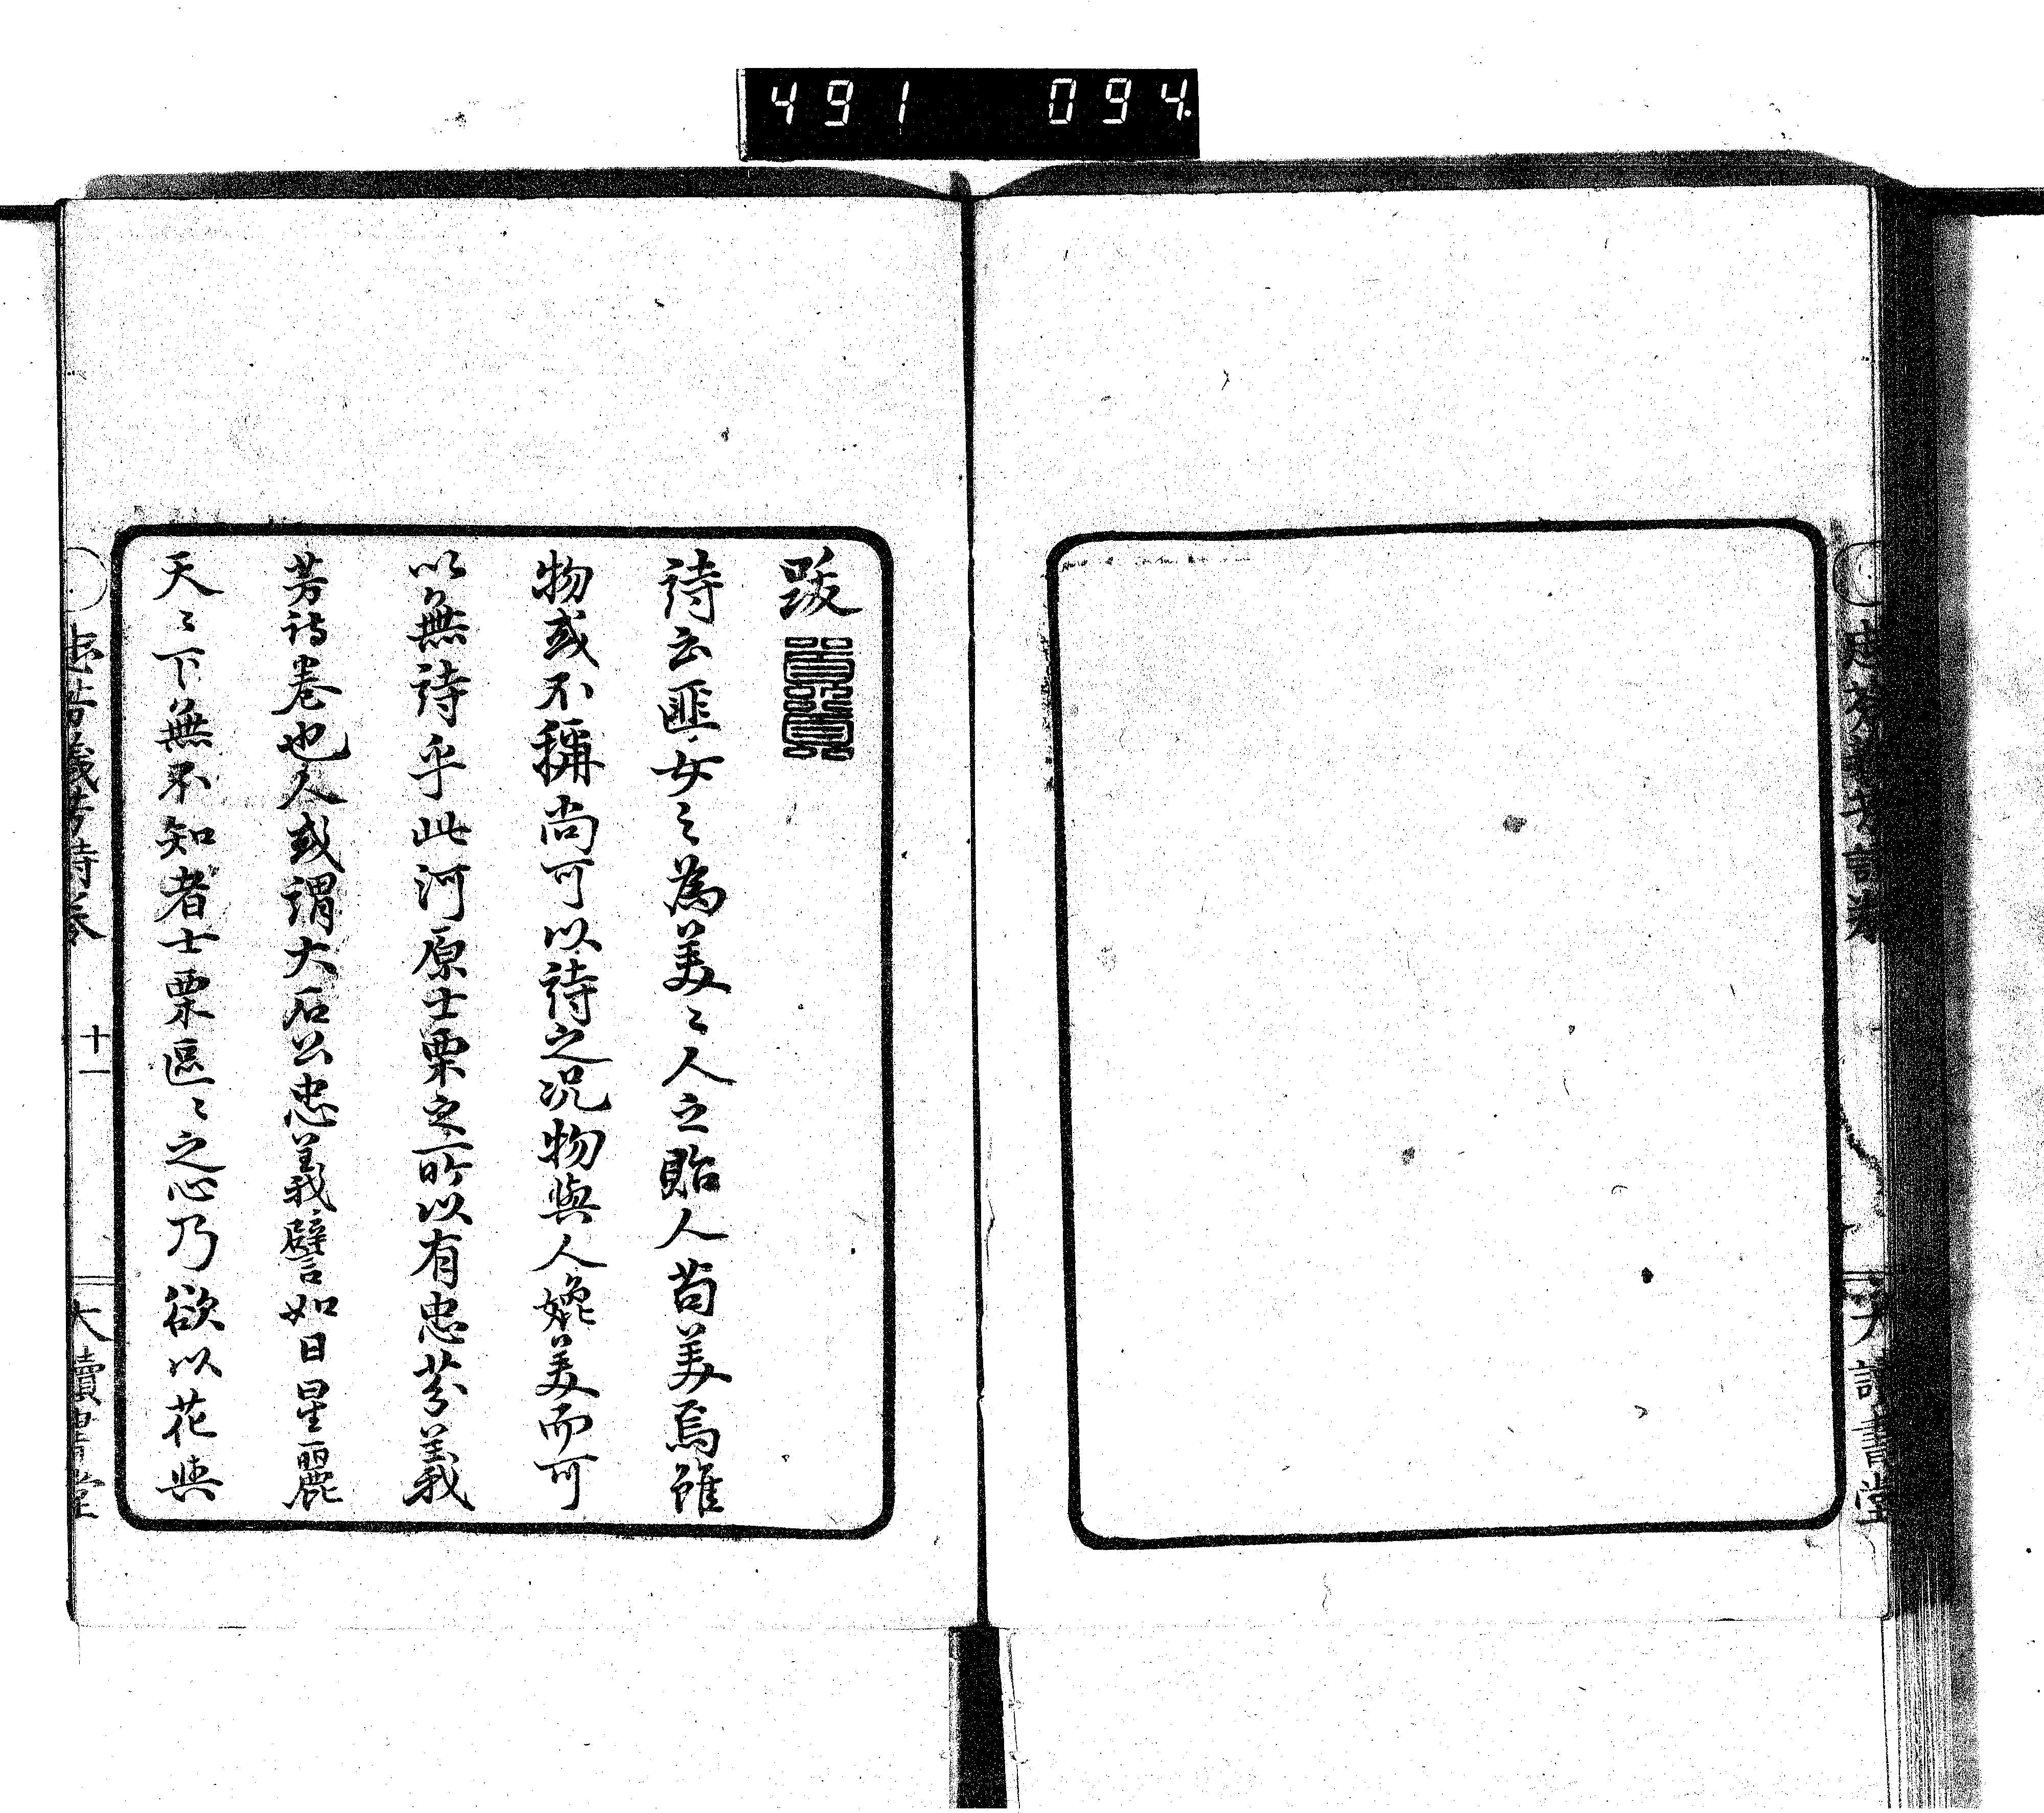 491 094
忠芬義芳詩卷
大讀書堂
跋
詩云匪女之為美〻人之貽人苟美焉雖
物或不稱尚可以詩之况物與人媲美而可
以無詩乎此河原士栗之所以有忠芬義
芳詩卷也人或謂大石公忠義譬如日星麗
天〻下無不知者士栗區〻之心乃欲以花與
忠芬義芳詩卷
十一
大讀書堂